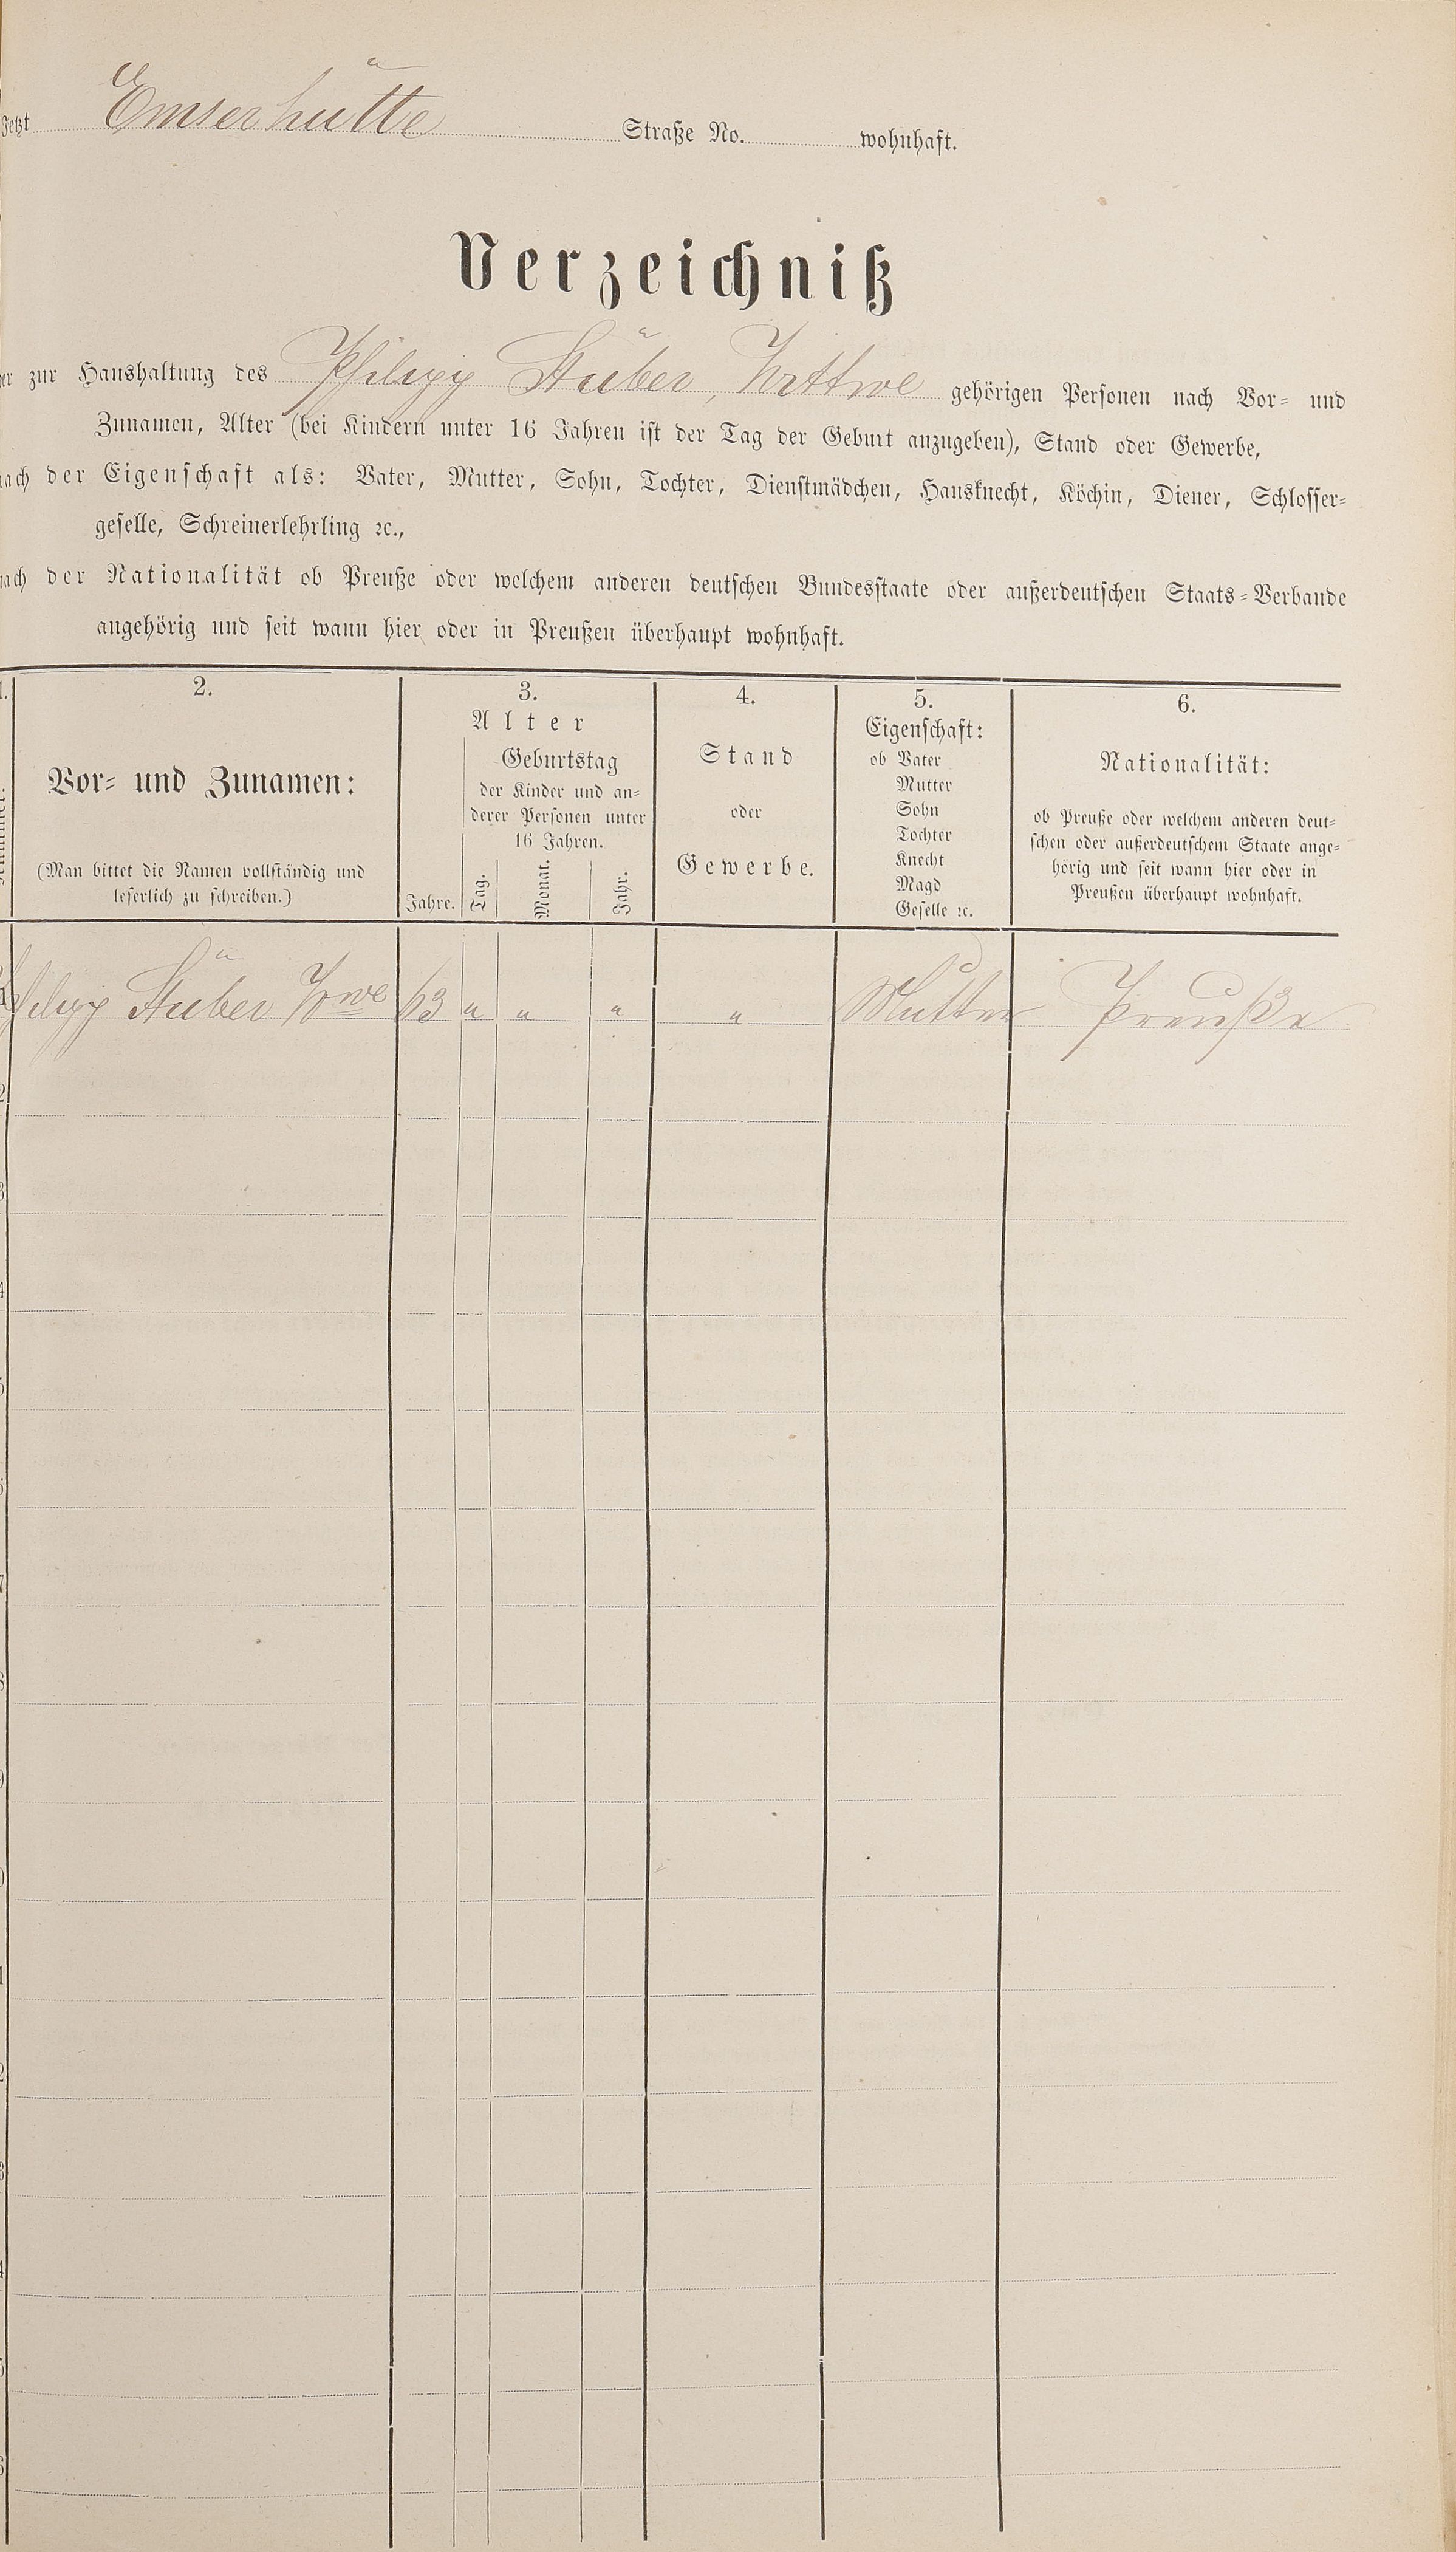 Jetzt Emserhütte Straße No. wohnhaft.
Verzeichniß
zur Haushaltung des Philipp Stüber, Wittwe gehörigen Personen nach Vor- und
Zunamen, Alter (bei Kindern unter 16 Jahren ist der Tag der Geburt anzugeben), Stand oder Gewerbe,
nach der Eigenschaft als: Vater, Mutter, Sohn, Tochter, Dienstmädchen, Hausknecht, Köchin, Diener, Schlosser-
geselle, Schreinerlehrling ꝛc.,
nach der Nationalität ob Preuße oder welchem anderen deutschen Bundesstaate oder außerdeutschen Staats-Verbande
angehörig und seit wann hier oder in Preußen überhaupt wohnhaft.
1. 2. 3. 4. 5. 6.
Vor- und Zunamen:
(Man bittet die Namen vollständig und
leserlich zu schreiben.)
Alter
Geburtstag
der Kinder und an-
derer Personen unter
16 Jahren.
Jahre. Tag. Monat. Jahr.
Stand
oder
Gewerbe.
Eigenschaft:
ob Vater
Mutter
Sohn
Tochter
Knecht
Magd
Geselle ꝛc.
Nationalität:
ob Preuße oder welchem anderen deut-
schen oder außerdeutschem Staate ange-
hörig und seit wann hier oder in
Preußen überhaupt wohnhaft.
1 Philipp Stüber Wwe 63 " " " " Mutter Preuße
2
3
4
5
6
7
8
9